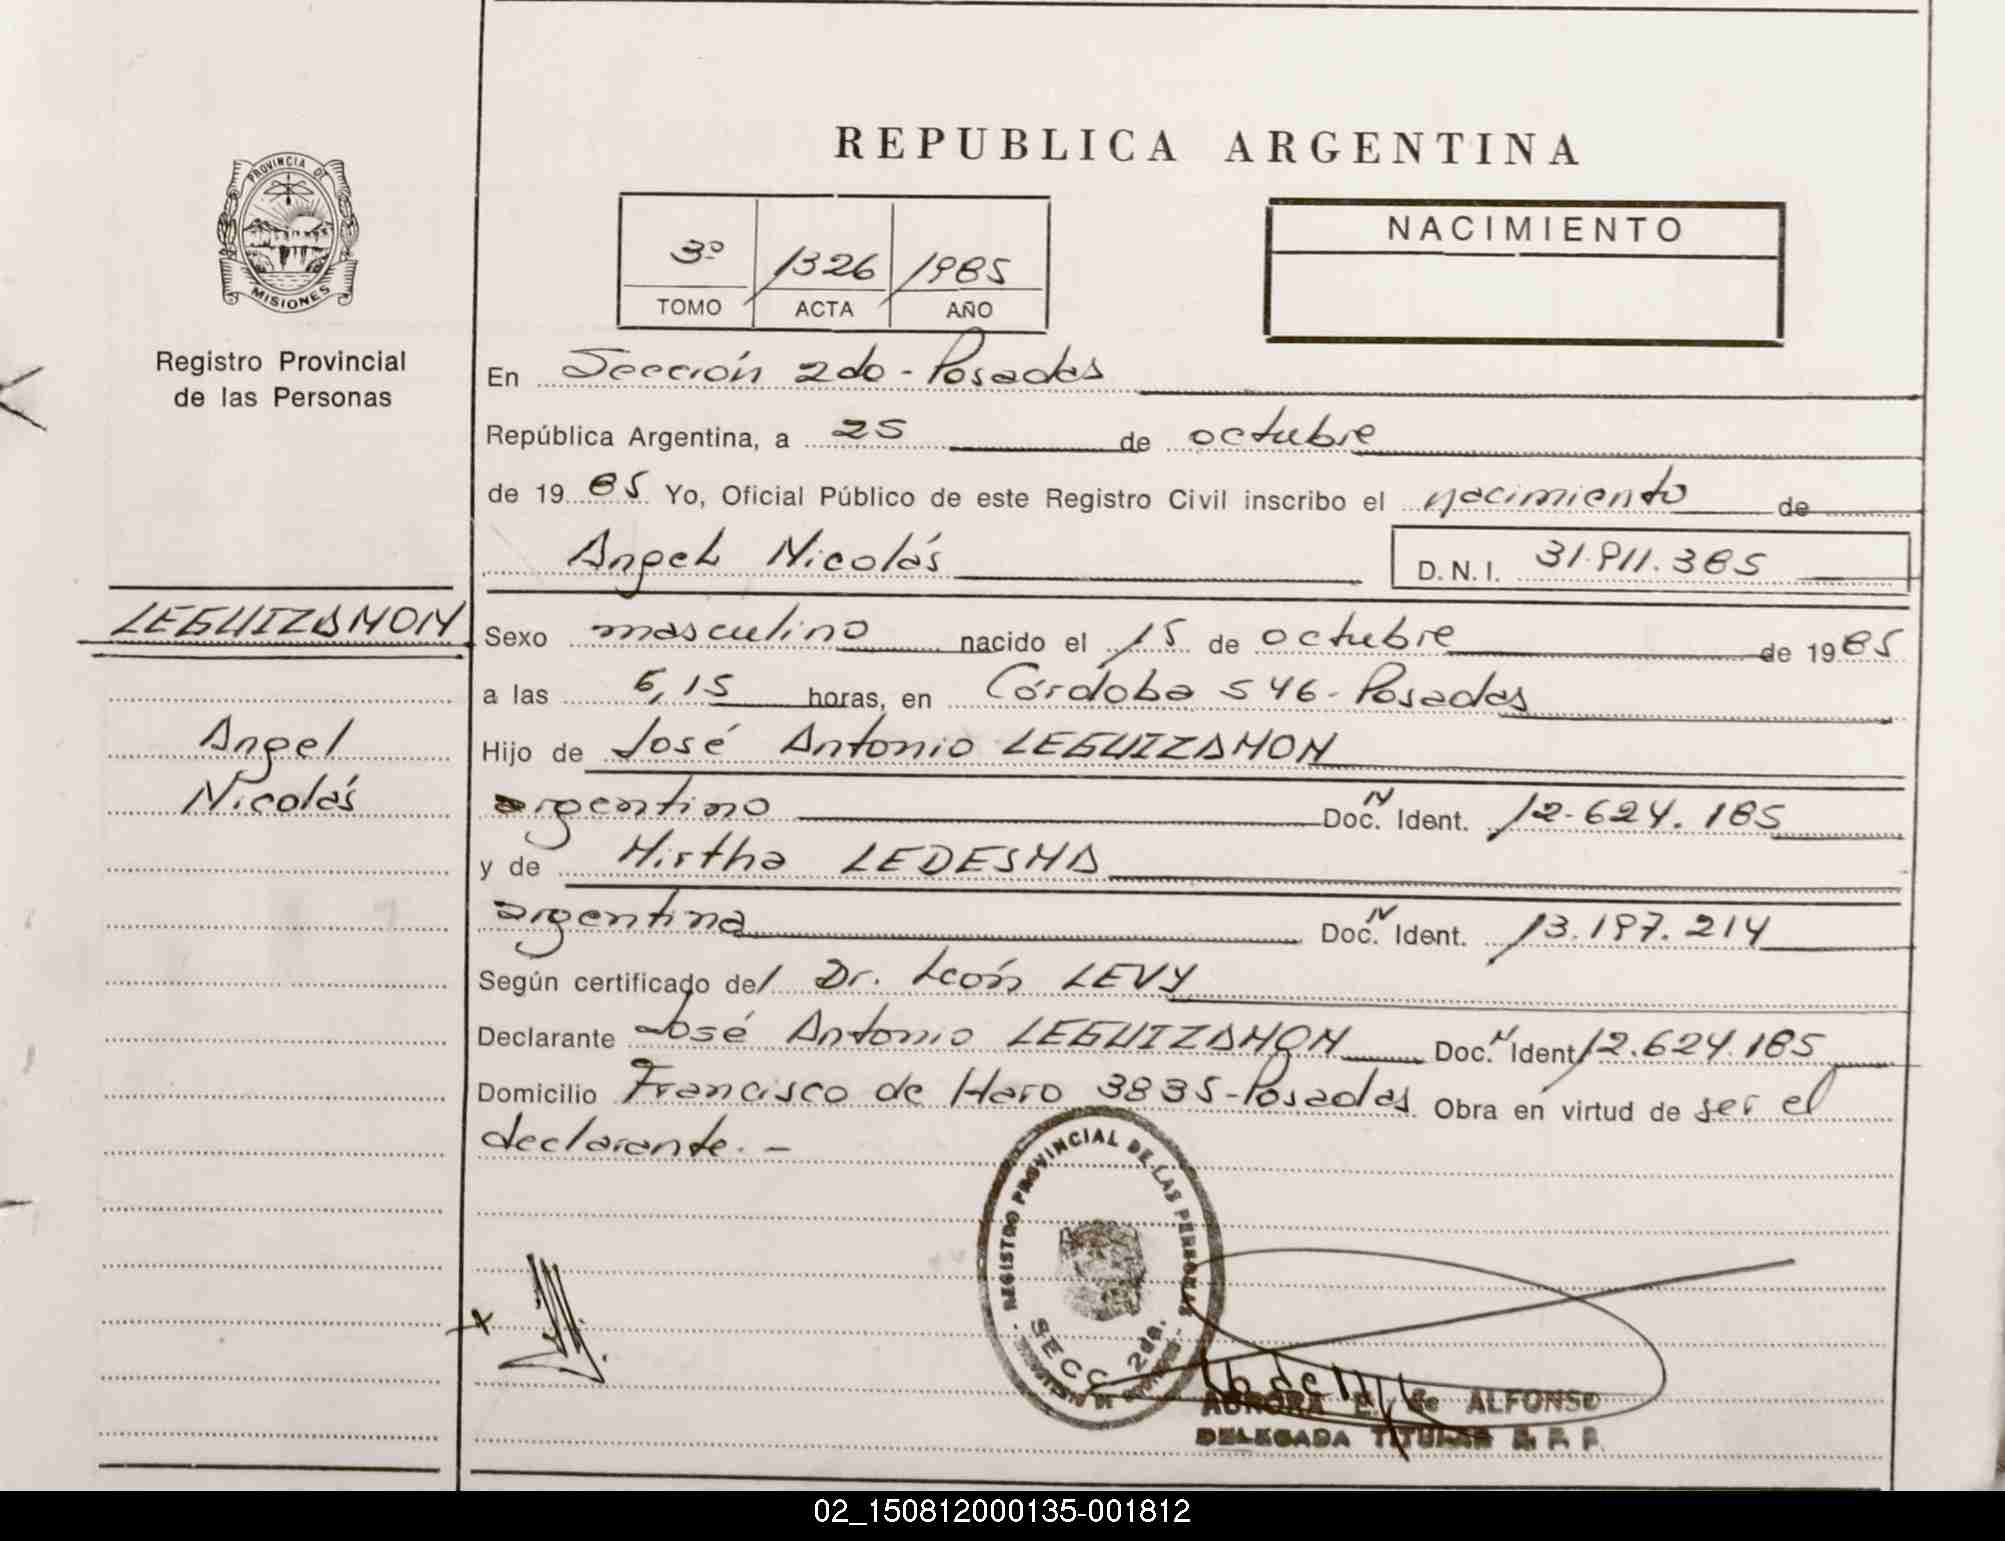 PROVINCIA DE
MISIONES
Registro Provincial
de las Personas
LEGUIZAMON
Angel
Nicolás
REPUBLICA ARGENTINA
3º 1326 1985
TOMO ACTA AÑO
NACIMIENTO
En Sección 2do - Posadas
República Argentina, a 25 de octubre
de 1985 Yo, Oficial Público de este Registro Civil inscribo el nacimiento de
Angel Nicolás D.N.I. 31.911.385
Sexo masculino nacido el 15 de octubre de 1985
a las 6,15 horas, en Córdoba 546 - Posadas
Hijo de José Antonio LEGUIZAMON
argentino Doc. N Ident. 12.624.185
y de Mirtha LEDESMA
argentina Doc. N Ident. 13.197.214
Según certificado del Dr. León LEVY
Declarante José Antonio LEGUIZAMON Doc. N Ident 12.624.185
Domicilio Francisco de Haro 3835 - Posadas Obra en virtud de ser el
declarante. -
REGISTRO PROVINCIAL DE LAS PERSONAS
SECC. 2da.
AURORA E. de ALFONSO
DELEGADA TITULAR R. P. P.
02_150812000135-001812